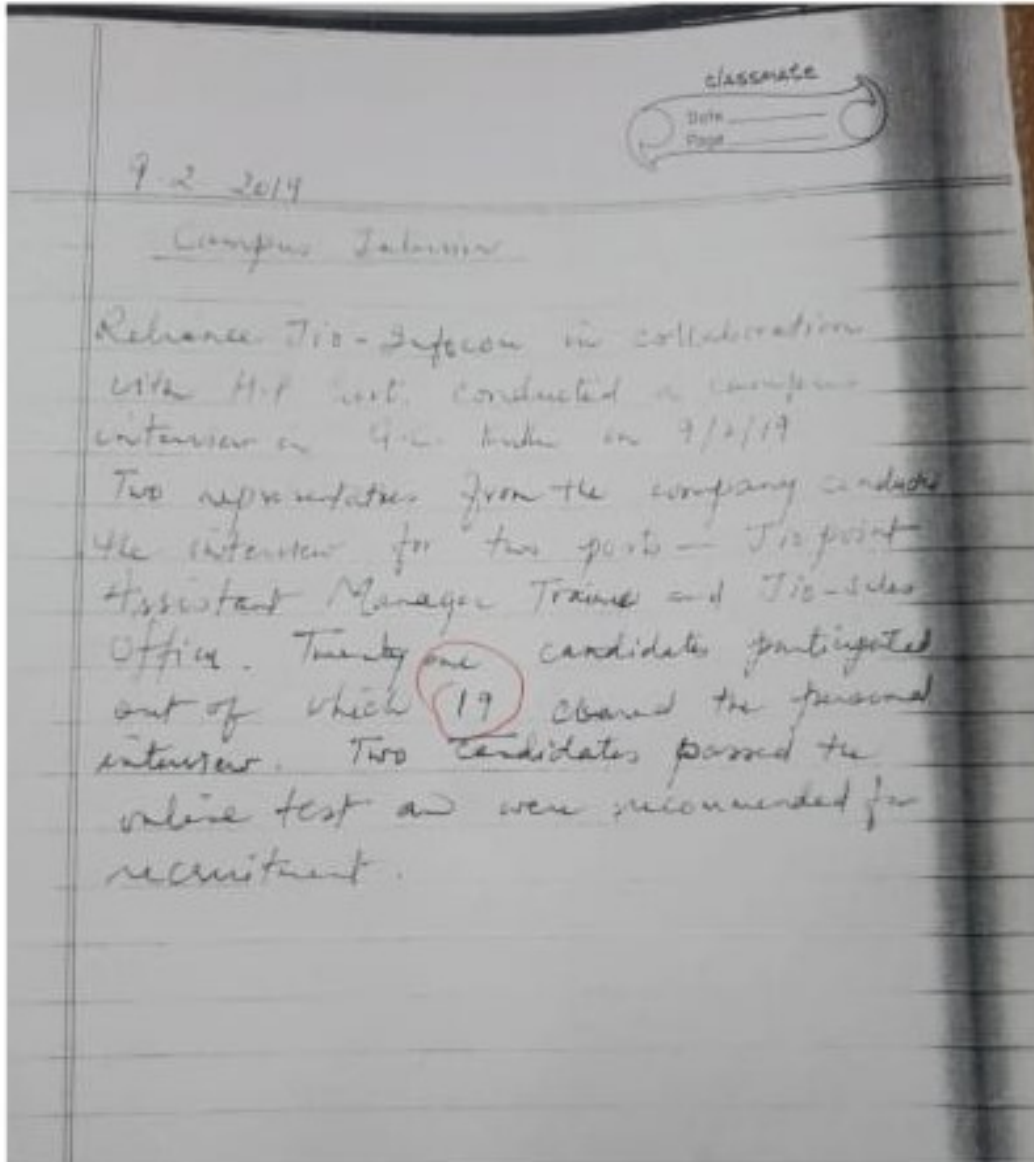 classmate
Date
Page
9-2-2019
Campus Interview
Reliance Jio-Infocom in collaboration
with H.P conducted a campus
interview in G.C. on 9/2/19
Two representatives from the company conducted
the interview for two posts — Jio point
Assistant Manager Trainee and Jio-Sales
Officer. Twenty one candidates participated
out of which 19 cleared the personal
interview. Two candidates passed the
online test and were recommended for
recruitment.